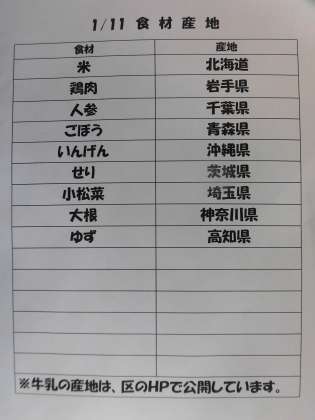 1/11 食材産地
食材 産地
米 北海道
鶏肉 岩手県
人参 千葉県
ごぼう 青森県
いんげん 沖縄県
せり 茨城県
小松菜 埼玉県
大根 神奈川県
ゆず 高知県
※牛乳の産地は、区のHPで公開しています。